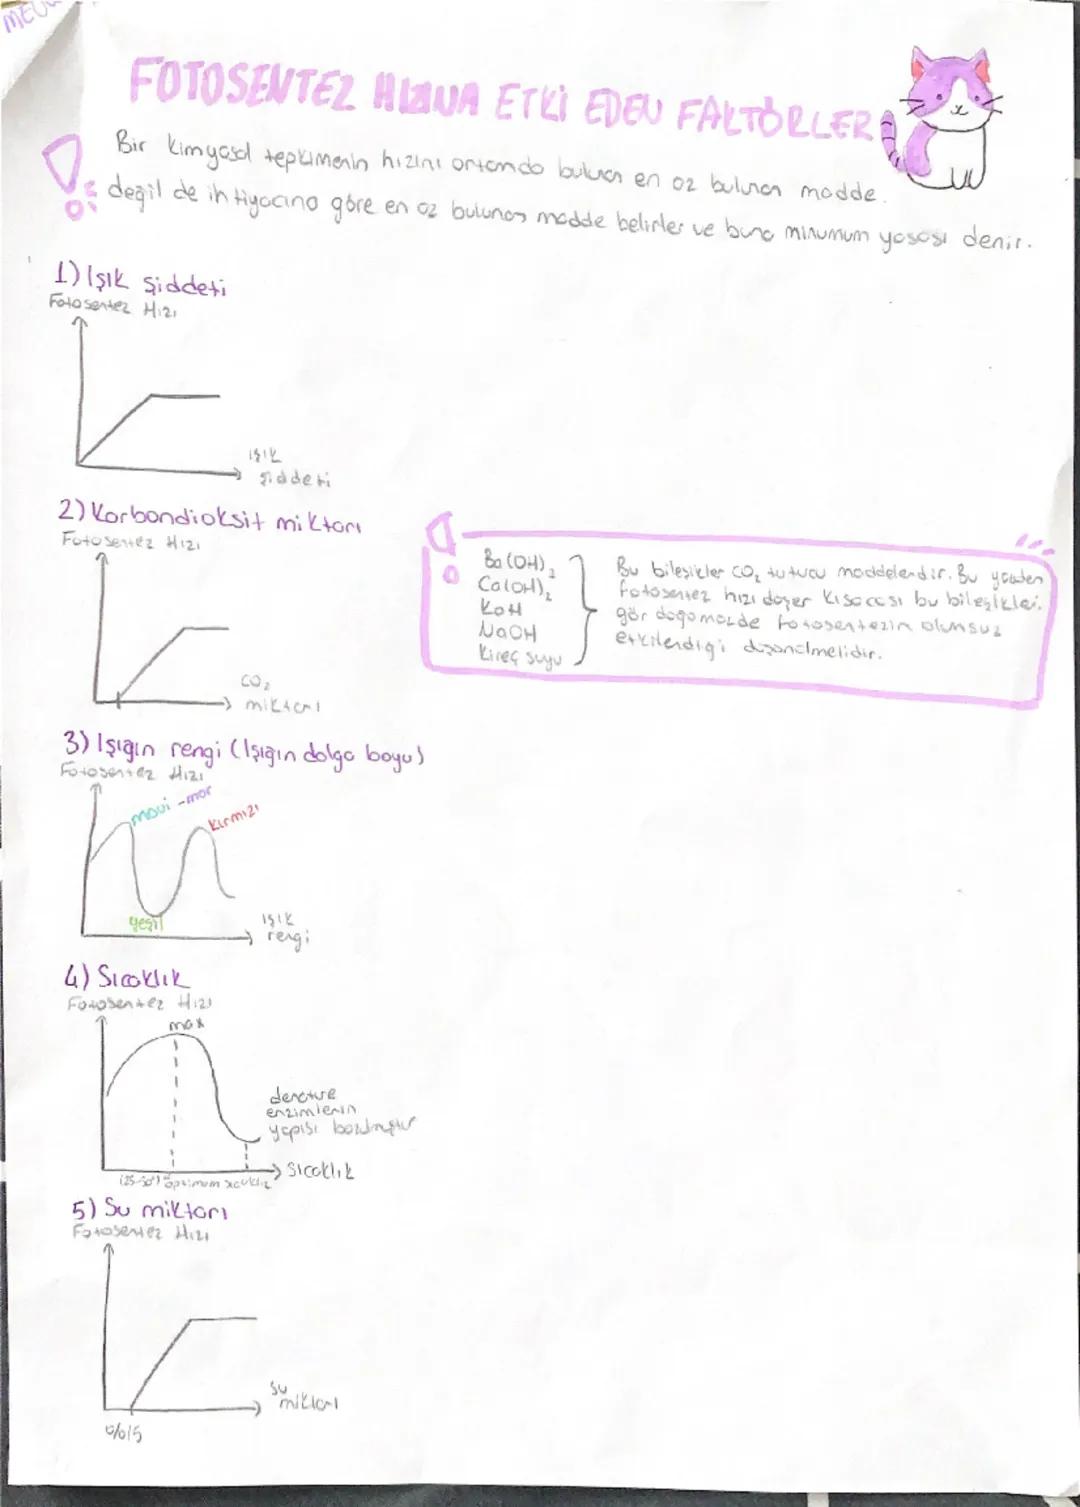 FOTOSENTEZ HIZINA ETKİ EDEN FAKTÖRLER
Bir kimyasal tepkimenin hızını ortamda bulunan en az bulunan madde
değil de ihtiyacına göre en az bulunan madde belirler ve buna minumum yasası denir.
1) Işık şiddeti
Fotosentez Hızı
ışık
şiddeti
2) Karbondioksit miktarı
Fotosentez Hızı
CO₂
miktarı
Ba(OH)₂
Ca(OH)₂
KOH
NaOH
Kireç suyu
Bu bileşikler CO₂ tutucu maddelerdir. Bu yüzden
fotosentez hızı düşer kısacası bu bileşikleri
gördüğümüzde fotosentezin olumsuz
etkilendiği düşünülmelidir.
3) Işığın rengi (Işığın dalga boyu)
Fotosentez Hızı
mavi-mor
kırmızı
yeşil
ışık
rengi
4) Sıcaklık
Fotosentez Hızı
max
denatüre
enzimlerin
yapısı bozulmuştur
Sıcaklık
optimum sıcaklık
5) Su miktarı
Fotosentez Hızı
su
miktarı
%15